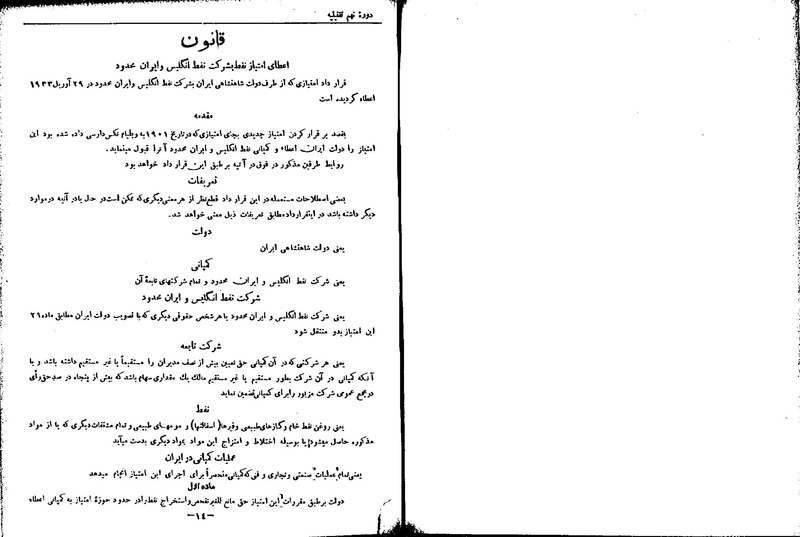 دورهٔ نهم تقنینیه
قانون
اعطای امتیاز نفط بشرکت نفط انگلیس و ایران محدود
قرار داد امتیازی که از طرف دولت شاهنشاهی ایران بشرکت نفط انگلیس و ایران محدود در ۲۹ آوریل ۱۹۳۳
اعطاء کردیده است
مقدمه
بقصد بر قرار کردن امتیاز جدیدی بجای امتیازی که در تاریخ ۱۹۰۱ به ویلیام نکس دارسی داده شده بود این
امتیاز را دولت ایران اعطاء و کمپانی نفط انگلیس و ایران محدود آنرا قبول مینماید.
روابط طرفین مذکور در فوق در آتیه بر طبق این قرار داد خواهد بود
تعریفات
بعضی اصطلاحات مستعمله در این قرار داد قطع نظر از هر معنی دیگری که ممکن است در حال یا در آتیه در موارد
دیگر داشته باشد در اینقرارداد مطابق تعریفات ذیل معنی خواهد شد.
دولت
یعنی دولت شاهنشاهی ایران
کمپانی
یعنی شرکت نفط انگلیس و ایران محدود و تمام شرکتهای تابعهٔ آن
شرکت نفط انگلیس و ایران محدود
یعنی شرکت نفط انگلیس و ایران محدود یا هر شخص حقوقی دیگری که با تصویب دولت ایران مطابق ماده ۲۶
این امتیاز بدو منتقل شود
شرکت تابعه
یعنی هر شرکتی که در آن کمپانی حق تعیین بیش از نصف مدیران را مستقیماً یا غیر مستقیم داشته باشد و یا
آنکه کمپانی در آن شرکت بطور مستقیم یا غیر مستقیم مالک یك مقداری سهام باشد که بیش از پنجاه در صد حق رأی
در مجمع عمومی شرکت مزبور را برای کمپانی تضمین نماید
نفط
یعنی روغن نفط خام و گازهای طبیعی و قیرها (اسفالتها) و مومهای طبیعی و تمام مشتقات دیگری که یا از مواد
مذکوره حاصل میشود یا بوسیله اختلاط و امتزاج این مواد بمواد دیگری بدست میآید
عملیات کمپانی در ایران
یعنی تمام عملیات صنعتی و تجارتی و فنی که کمپانی منحصراً برای اجرای این امتیاز انجام میدهد
ماده اول
دولت بر طبق مقررات این امتیاز حق مانع للغیر تفحص و استخراج نفط را در حدود حوزهٔ امتیاز به کمپانی اعطاء
–۱٤–